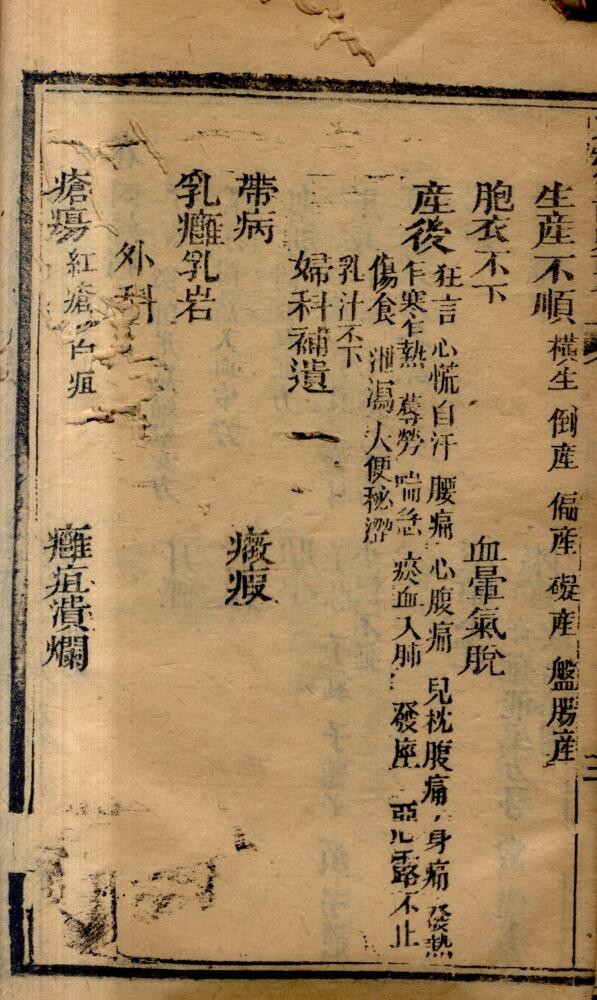 生產不順 橫生 倒產 偏產 礙產 盤腸產
胞衣不下 血暈氣脫
產後 狂言 心慌自汗 腰痛 心腹痛 兒枕腹痛 身痛 發熱
乍寒乍熱 蓐勞 喘急 瘀血入肺 發痙 惡露不止
傷食 泄瀉 大便秘澀
乳汁不下
婦科補遺
帶病 癥瘕
乳癰乳岩
外科
瘡瘍 紅瘡 白疽 癰疽潰爛